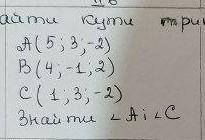 айти кути трик
A(5; 3; -2)
B(4; -1; 2)
C(1; 3; -2)
Знайти ∠A і ∠C